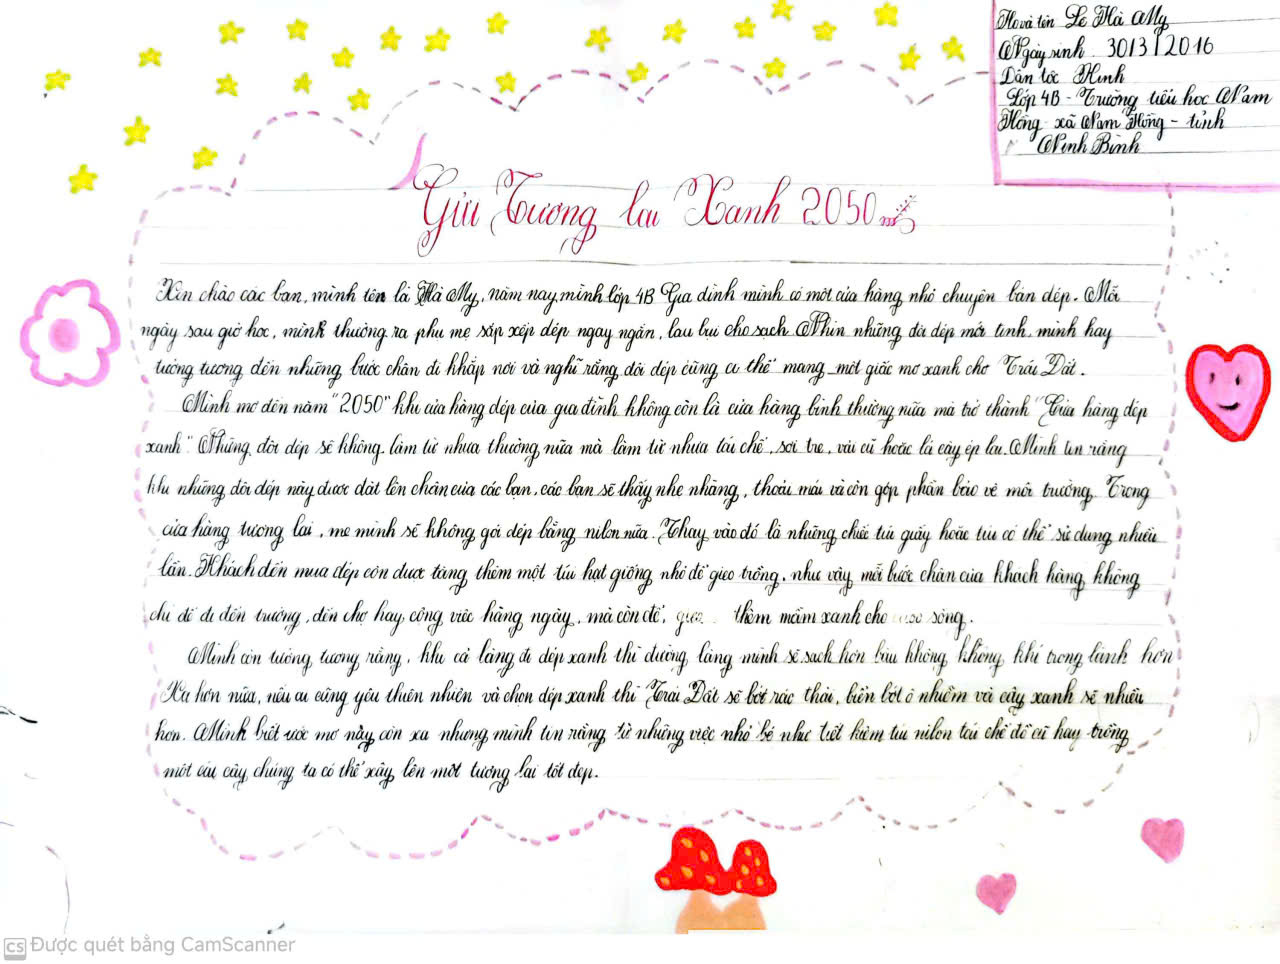 Họ và tên Lê Hà My
Ngày sinh 30/3/2016
Dân tộc Kinh
Lớp 4B - Trường tiểu học Nam
Hồng - xã Nam Hồng - tỉnh
Ninh Bình
Gửi Tương lai Xanh 2050
Xin chào các bạn, mình tên là Hà My, năm nay mình lớp 4B Gia đình mình có một cửa hàng nhỏ chuyên bán dép. Mỗi
ngày sau giờ học, mình thường ra phụ mẹ sắp xếp dép ngay ngắn, lau bụi cho sạch Nhìn những đôi dép mới tinh, mình hay
tưởng tượng đến những bước chân đi khắp nơi và nghĩ rằng đôi dép cũng có thể mang một giấc mơ xanh cho Trái Đất.
Mình mơ đến năm "2050" khi cửa hàng dép của gia đình không còn là cửa hàng bình thường nữa mà trở thành "Cửa hàng dép
xanh" Những đôi dép sẽ không làm từ nhựa thường nữa mà làm từ nhựa tái chế, sợi tre, vải cũ hoặc lá cây ép lại. Mình tin rằng
khi những đôi dép này được đặt lên chân của các bạn, các bạn sẽ thấy nhẹ nhàng, thoải mái và còn góp phần bảo vệ môi trường. Trong
cửa hàng tương lai, mẹ mình sẽ không gói dép bằng nilon nữa. Thay vào đó là những chiếc túi giấy hoặc túi có thể sử dụng nhiều
lần. Khách đến mua dép còn được tặng thêm một túi hạt giống nhỏ để gieo trồng, như vậy mỗi bước chân của khách hàng không
chỉ để đi đến trường, đến chợ hay công việc hàng ngày, mà còn để, gieo thêm mầm xanh cho cuộc sống.
Mình còn tưởng tượng rằng, khi cả làng đi dép xanh thì đường làng mình sẽ sạch hơn bầu không không khí trong lành hơn
Xa hơn nữa, nếu ai cũng yêu thiên nhiên và chọn dép xanh thì Trái Đất sẽ bớt rác thải, biển bớt ô nhiễm và cây xanh sẽ nhiều
hơn. Mình biết ước mơ này còn xa nhưng mình tin rằng từ những việc nhỏ bé như tiết kiệm túi nilon tái chế đồ cũ hay trồng
một cái cây chúng ta có thể xây lên một tương lai tốt đẹp.
CS Được quét bằng CamScanner